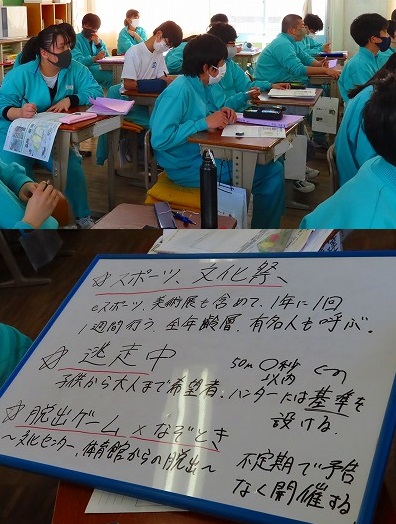 ☆スポーツ、文化祭、
eスポーツ、美術展も含めて、1年に1回
1週間行う、全年齢層、有名人も呼ぶ。
☆逃走中 50m〇秒以内
子供から大人まで希望者、ハンターには基準を
設ける
☆脱出ゲーム×なぞとき
~文化センター、体育館からの脱出~
不定期で予告
なく開催する